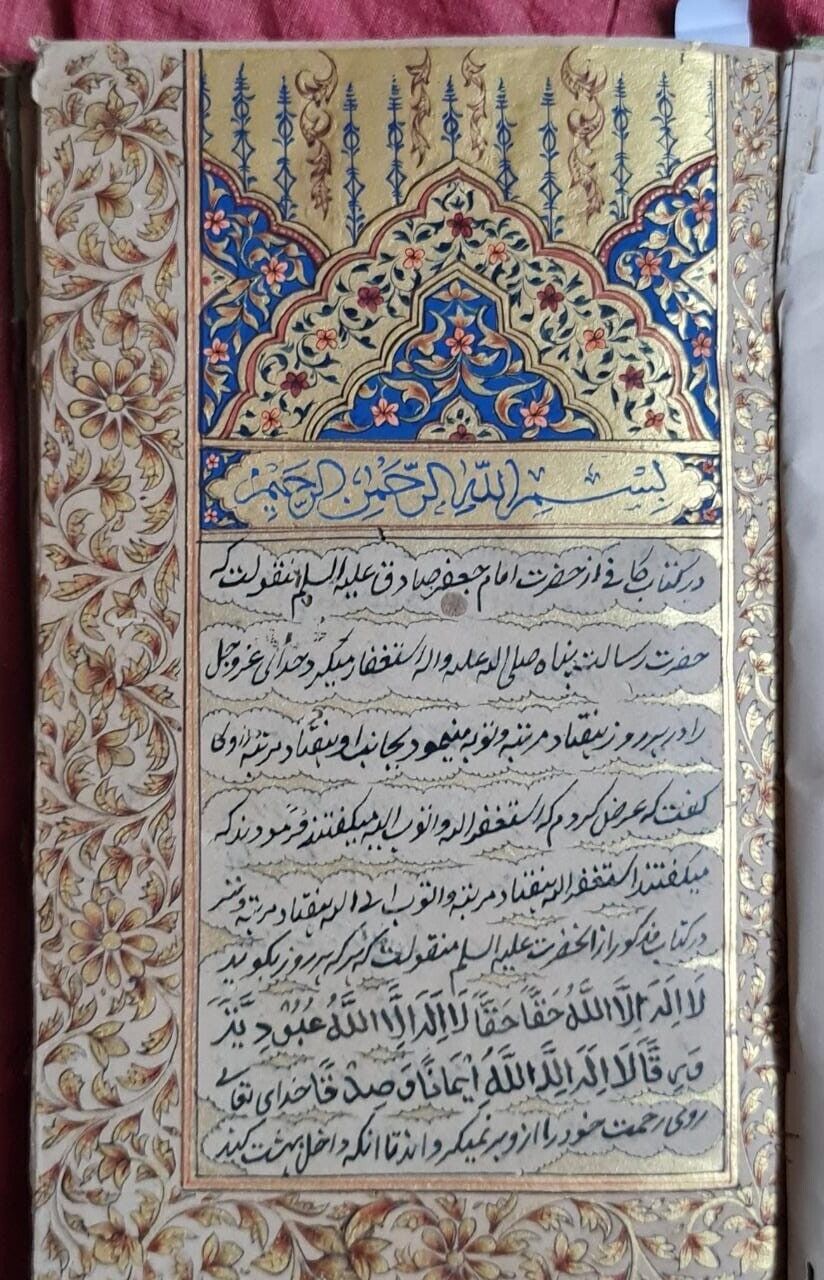 بِسْمِ اللّٰهِ الرَّحْمٰنِ الرَّحِيْمِ
در کتاب کافی از حضرت امام جعفر صادق علیه السلم منقولست که
حضرت رسالت پناه صلی الله علیه واله استغفار میکرد خدای عزوجل
را در هر روز هفتاد مرتبه و توبه مینمود بجانب او هفتاد مرتبه راوی
گفت که عرض کردم که استغفر الله واتوب الیه میگفتند فرمودند که
میگفتند استغفر الله هفتاد مرتبه واتوب الی الله هفتاد مرتبه و نیز
در کتاب مذکور از انحضرت علیه السلم منقولست که هر که هر روز بگوید
لَا اِلٰهَ اِلَّا اللَّهُ حَقًّا حَقًّا لَا اِلٰهَ اِلَّا اللَّهُ عُبُودِيَّةً
وَرِقًّا لَا اِلٰهَ اِلَّا اللَّهُ اِيمَانًا وَصِدْقًا خدای تعالی
روی رحمت خود را از و برنمیگرداند تا انکه داخل بهشت کند